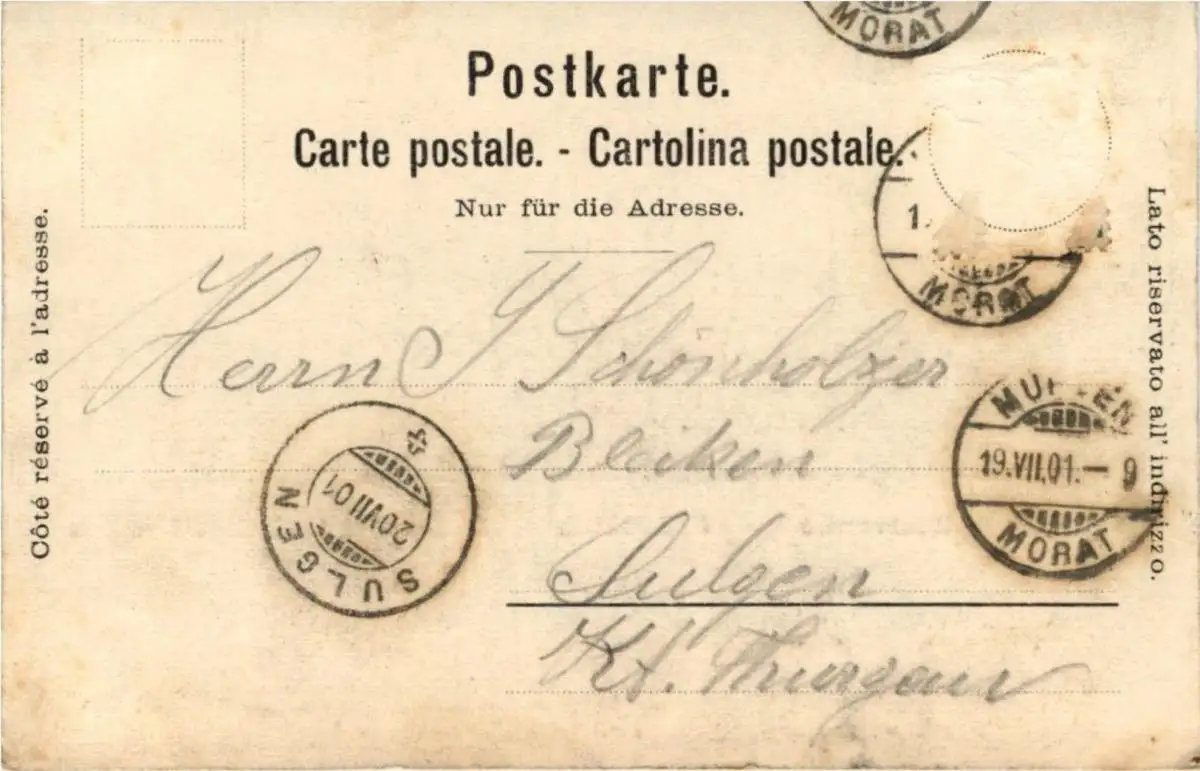 MORAT
Postkarte.
Carte postale. - Cartolina postale.
Nur für die Adresse.
Côté réservé à l'adresse.
Lato riservato all' indirizzo.
1.
MORAT
Herrn J Schönholzer
Bleiken
Sulgen
Kt. Thurgau
19.VII.01.— 9
MORAT
SULGEN
20 VII 01